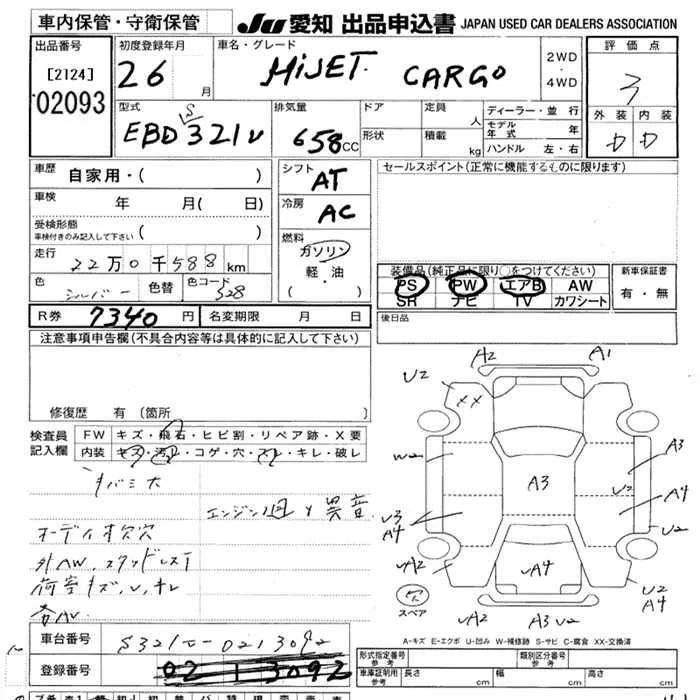 車内保管・守衛保管
JU 愛知 出品申込書 JAPAN USED CAR DEALERS ASSOCIATION
出品番号
[2124]
02093
初度登録年月
26 月
車名・グレード
HiJET CARGO
2WD
・
4WD
評価点
3
外装 内装
D D
型式
S
EBD 321V
排気量
658 CC
ドア
形状
定員 人
積載 kg
ディーラー・並行
モデル年式 年
ハンドル 左・右
車歴 自家用・( )
車検 年 月( 日)
受検形態
車検付きのみ記入して下さい ( )
走行 22万0千588 km
色 シルバー 色替 色コード S28
シフト AT
冷房 AC
燃料
ガソリン
軽・油
( ・ )
セールスポイント(正常に機能するものに限ります)
装備品(純正品に限り○をつけてください)
PS PW エアB AW
SR ナビ TV カワシート
新車保証書
有・無
R券 7340 円 名変期限 月 日
後日品
注意事項申告欄(不具合内容等は具体的に記入して下さい)
修復歴 有(箇所 )
検査員
記入欄
FW キズ・飛石・ヒビ割・リペア跡・X要
内装 キズ・汚レ・コゲ・穴・スレ・キレ・破レ
エンジン廻り異音
オーディオ欠穴
外AW、スタッドレス
荷室キズ、U、キレ
A2 A1
U2
XX
W2
A3
A3
U2
A4
U3
A4
U2
UA2
UA4
U2
A4
UA2
A3 U2
穴
スペア
A-キズ E-エクボ U-凹み W-補修跡 S-サビ C-腐食 XX-交換済
車台番号 S321V-0213092
登録番号 02 13092
形式指定番号
参考
類別区分番号
参考
車庫証明用
参考
長さ cm 幅 cm 高さ cm